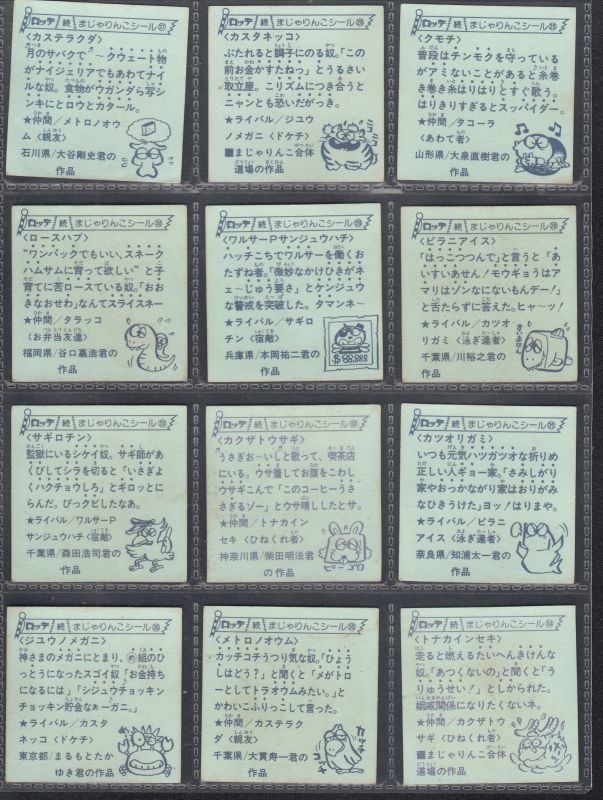 ロッテ 続 まじゃりんこシール㉗
〈カステラクダ〉
月のサバクで〝～クウェート物
がナイジェリアでもあわてナイ
ルな奴。食物がウガンダら写シ
ンキにとロウとカタール。
★仲間/メトロノオウ
ム〈親友〉
石川県/大谷剛史君の
作品
ロッテ 続 まじゃりんこシール㉖
〈カスタネッコ〉
ぶたれると調子にのる奴。「この
前お金かすたねっ」とうるさい
取立屋。こリズムにつき合うと
ニャンとも恐いだがっき。
★ライバル/ジユウ
ノメガニ〈ドケチ〉
■まじゃりんこ合体
道場の作品
ロッテ 続 まじゃりんこシール㉕
〈クモチ〉
普段はチンモクを守っている
がアミないことがあると糸巻
き巻き糸はりはりとすぐ歌う。
はりきりすぎるとスッパイダー。
★仲間/タコーラ
〈あわて者〉
山形県/大泉直樹君の
作品
ロッテ 続 まじゃりんこシール㉚
〈ロースハブ〉
〝ワンパックでもいい、スネーク
ハムサムに育って欲しい〟と子
育てに苦ロースている奴。「おお
きなおせわ」なんてスライスネー
★仲間/タラッコ
〈お弁当友達〉
福岡県/谷口嘉浩君の
作品
ロッテ 続 まじゃりんこシール㉙
〈ワルサーPサンジュウハチ〉
ハッチこちでワルサーを働くお
たずね者。「微妙なかけひきがネ
ェ～じゅう要さ」とケンジュウ
な警戒を突破した。タマンネ～
★ライバル/サギロ
チン〈宿敵〉
兵庫県/本岡祐二君の
作品
$88,888
ロッテ 続 まじゃりんこシール㉘
〈ピラニアイス〉
「はっこつつんで」と言うと「あ
いすいあせん！モウギョうはア
マリはゾンなにないもんデー！」
と舌たらずに答えた。ヒャ～ッ！
★ライバル/カツオ
リガミ〈泳ぎ達者〉
千葉県/川裕之君の
作品
ロッテ 続 まじゃりんこシール㉝
〈サギロチン〉
監獄にいるシケイ奴。サギ師があ
くびしてシラを切ると「いさぎよ
くハクチョウしろ」とギロッとに
らんだ。びっクビしたなあ。
★ライバル/ワルサーP
サンジュウハチ〈宿敵〉
千葉県/森田浩司君の
作品
ロッテ 続 まじゃりんこシール㉜
〈カクザトウサギ〉
〝うさぎお～いしと歌って、喫茶店
にいる。ウサ着してお腹をこわし
ウサギこんで「このコーヒーうさ
さぎるゾー」とウサ晴ししたとサ。
★仲間/トナカイン
セキ〈ひねくれ者〉
神奈川県/柴田明法君
の作品
ロッテ 続 まじゃりんこシール㉛
〈カツオリガミ〉
いつも元気ハツガツオな折りめ
正しい人ギョー家。「さみしがり
家やおっかながり家はおりがみ
なひきうけた」ヨッ！はりまや。
★ライバル/ピラニ
アイス〈泳ぎ達者〉
奈良県/知浦太一君の
作品
ロッテ 続 まじゃりんこシール㊱
〈ジユウノメガニ〉
神さまのメガニにとまり、㋱組のひ
っとうになったスゴイ奴「お金持ち
になるには」「シジュウチョッキン
チョッキン貯金なぁーガニ。」
★ライバル/カスタ
ネッコ〈ドケチ〉
東京都/まるもとたか
ゆき君の作品
ロッテ 続 まじゃりんこシール㉟
〈メトロノオウム〉
カッチコチうつり気な奴。「ひょう
しはどう？」と聞くと「メがトロ
ーとしてトラオウムみたい。」と
かわいこふりっこして言った。
★仲間/カステラク
ダ〈親友〉
千葉県/大貫寿一君の
作品
ロッテ 続 まじゃりんこシール㉞
〈トナカインセキ〉
走ると燃えるたいへんきけんな
奴。「あつくないの」と聞くと「う
りゅうせい！」としかられた。
姻戚関係になりたくないネ。
★仲間/カクザトウ
サギ〈ひねくれ者〉
■まじゃりんこ合体
道場の作品